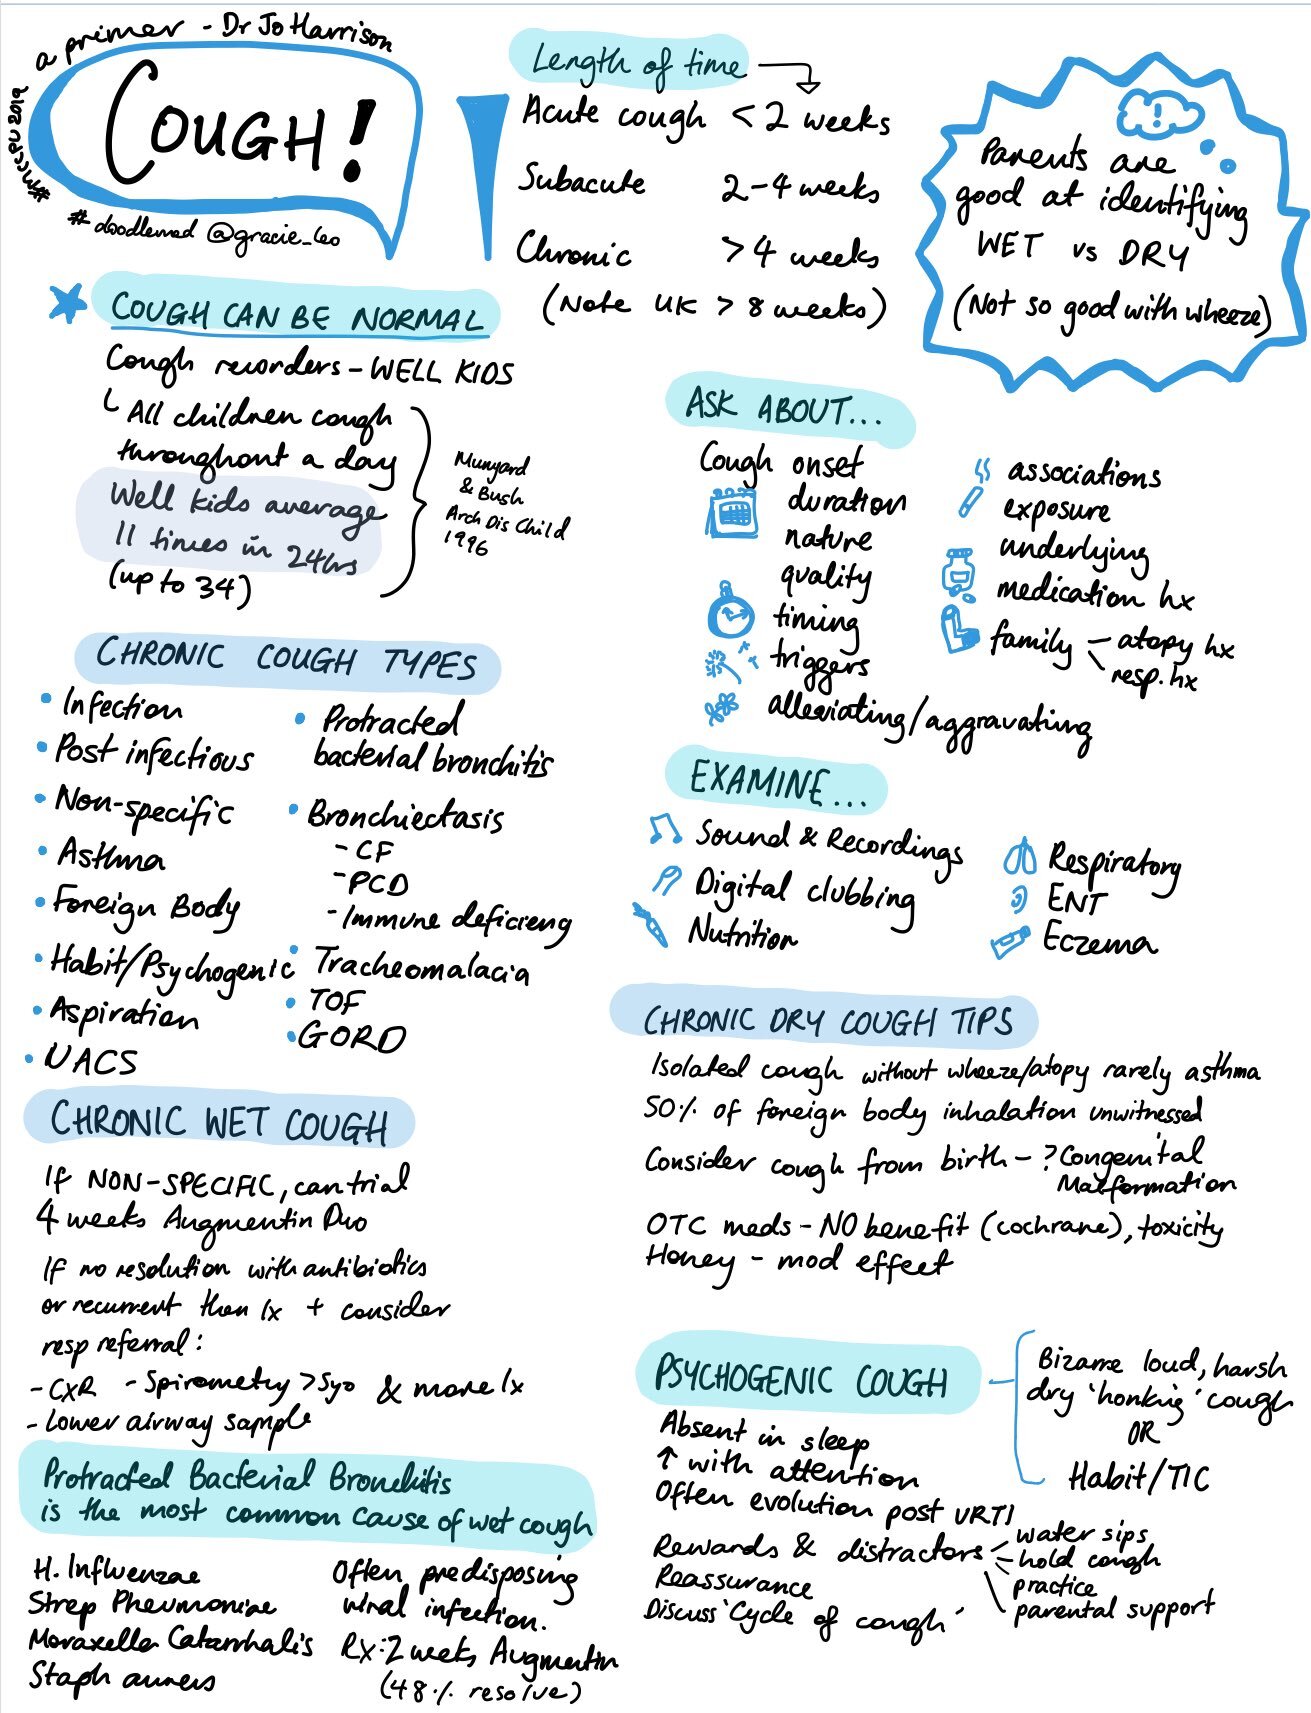 a primer - Dr Jo Harrison
COUGH!
#MCCPU2019
#doodlemed @gracie_leo
Length of time
Acute cough < 2 weeks
Subacute 2-4 weeks
Chronic > 4 weeks
(Note UK > 8 weeks)
!
Parents are
good at identifying
WET vs DRY
(Not so good with wheeze)
COUGH CAN BE NORMAL
Cough recorders - WELL KIDS
All children cough
throughout a day
Well kids average
11 times in 24hrs
(up to 34)
Munyard
& Bush
Arch Dis Child
1996
ASK ABOUT...
Cough onset
duration
nature
quality
timing
triggers
alleviating/aggravating
associations
exposure
underlying
medication hx
family - atopy hx
resp. hx
CHRONIC COUGH TYPES
• Infection
• Post infectious
• Non-specific
• Asthma
• Foreign Body
• Habit/Psychogenic
• Aspiration
• UACS
• Protracted
bacterial bronchitis
• Bronchiectasis
- CF
- PCD
- Immune deficieny
• Tracheomalacia
• TOF
• GORD
EXAMINE...
Sound & Recordings
Digital clubbing
Nutrition
Respiratory
ENT
Eczema
CHRONIC DRY COUGH TIPS
Isolated cough without wheeze/atopy rarely asthma
50% of foreign body inhalation unwitnessed
Consider cough from birth - ? Congenital
Malformation
OTC meds - NO benefit (cochrane), toxicity
Honey - mod effect
CHRONIC WET COUGH
If NON-SPECIFIC, can trial
4 weeks Augmentin Duo
If no resolution with antibiotics
or recurrent then Ix + consider
resp referral:
- CXR - Spirometry >5yo & more Ix
- Lower airway sample
Protracted Bacterial Bronchitis
is the most common cause of wet cough
H. Influenzae
Strep Pneumoniae
Moraxella Catarrhalis
Staph aureus
Often predisposing
viral infection.
Rx: 2 weeks Augmentin
(48% resolve)
PSYCHOGENIC COUGH
Bizarre loud, harsh
dry 'honking' cough
OR
Habit/TIC
Absent in sleep
↑ with attention
Often evolution post URTI
Rewards & distractors - water sips
- hold cough
practice
parental support
Reassurance
Discuss 'Cycle of cough'